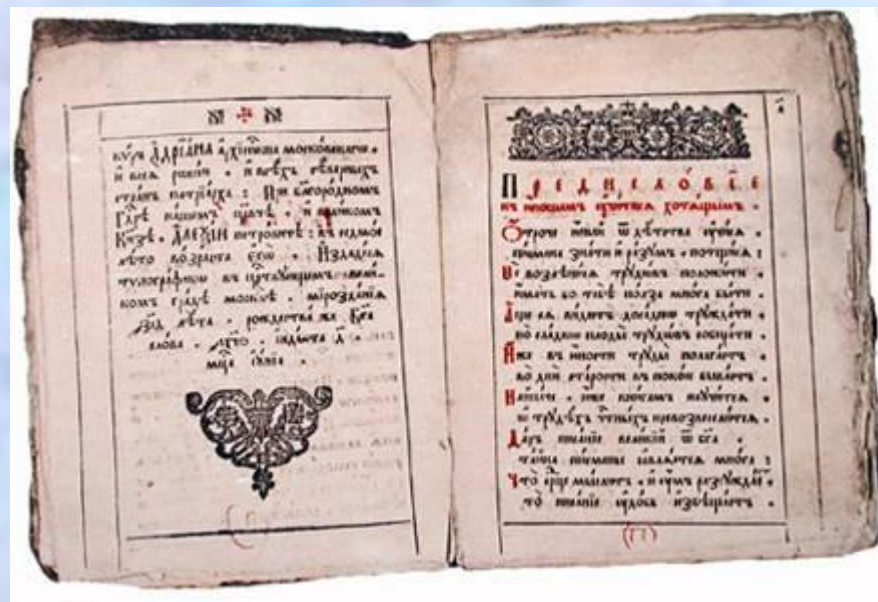 кѵръ А҆дрїа́на а҆рхїепⷭ҇копа московскаги •
и҆ всеѧ̀ рѡссі́и • и҆ всѣ́хъ сѣ́верныхъ
стра́нъ патрїа́рха : При бл҃горо́дномъ
гдⷭ҇рѣ на́шемъ црⷭ҇ви́чѣ • и҆ вели́комъ
кнѧ́зѣ • А҆леѯі́и петро́вичѣ : въ седмо́е
лѣ́то во́зраста є҆гѡ̀ • И҆здаде́сѧ
тѵпогра́фїею въ црⷭ҇твꙋ́ющемъ вели́-
комъ гра́дѣ москвѣ̀ • мїрозда́нїѧ
лѣ́та • рождества́ же бг҃а
сло́ва • лѣ́то • і҆нді́кта д҃ •
мцⷭ҇а і҆ꙋ́нїа •
а҃
Предисло́вїе
къ ю҆́ношамъ ᲂу҆чи́тисѧ хотѧ́щымъ •
Ѻ҆́троче ю҆́ный ѿ дѣ́тства ᲂу҆чи́сѧ
письмена̀ зна́ти и҆ ра́зꙋмъ • потщи́сѧ :
Не возлѣни́сѧ трꙋдѡ́въ положи́ти
и҆́мать бо тебѣ̀ по́лза мно́га бы́ти •
А҆́ще сѧ ви́дитъ доса́дно трꙋжда́ти
но сла́дко плоды̀ трꙋдѡ́въ собира́ти •
И҆̀же въ ю҆́ности трꙋды̀ полага́ютъ •
во дни̑ ста́рости въ поко́и быва́ютъ •
Наипа́че • и҆̀же кни́гамъ наꙋ́чатсѧ
и҆ трꙋдѣ́хъ че́стныхъ превознесꙋ́тсѧ •
Да́ръ писа́нїе вели́кїй ѿ бг҃а •
та́йна пи́смене ꙗ҆влѧ́етсѧ мно́га :
Что̀ а҆́ще мы́слѧтъ • и҆ ᲂу҆́мъ разсꙋжда́етъ
то̀ писа́нїе ᲂу҆до́бь и҆звѣща́етъ •